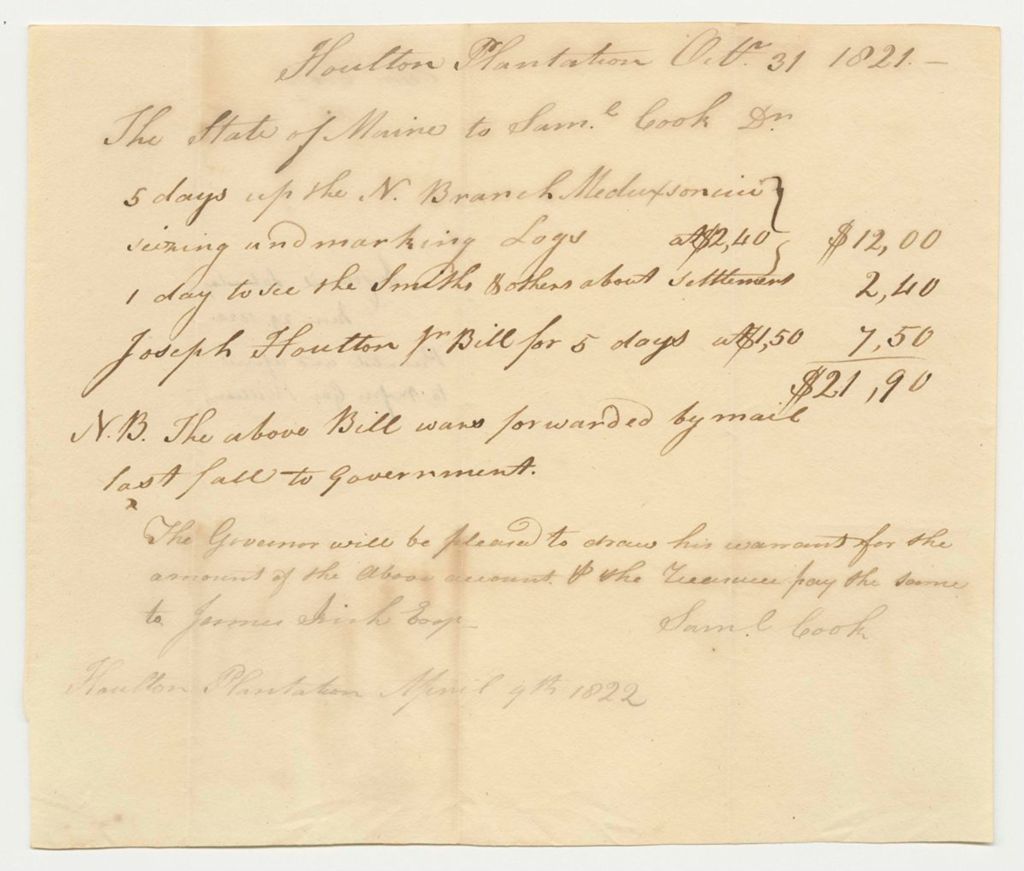 Houlton Plantation Octr. 31 1821. –
The State of Maine to Saml. Cook Dr.
5 days up the N. Branch Meduxsonicic
seizing and marking Logs at $2,40 $12,00
1 day to see the Smiths & others about settlement 2,40
Joseph Houlton Jr Bill for 5 days at $1,50 7,50
$21,90
N.B. The above Bill was forwarded by mail
last fall to Government.
The Governor will be pleased to draw his warrant for the
amount of the above account & the Treasurer pay the same
to James Irish Esqr
Saml. Cook
Houlton Plantation April 9th 1822